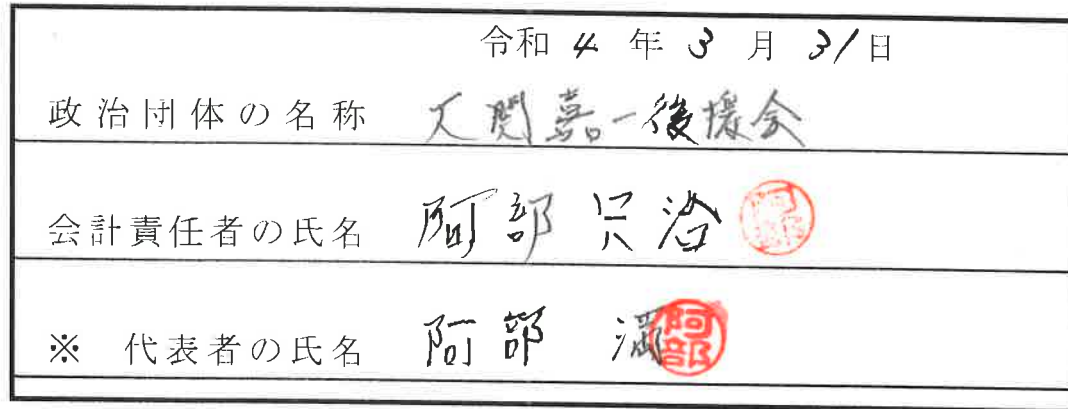 令和 4 年 3 月 31日
政治団体の名称 大関嘉一後援会
会計責任者の氏名 阿部 只治
※ 代表者の氏名 阿部 阿部